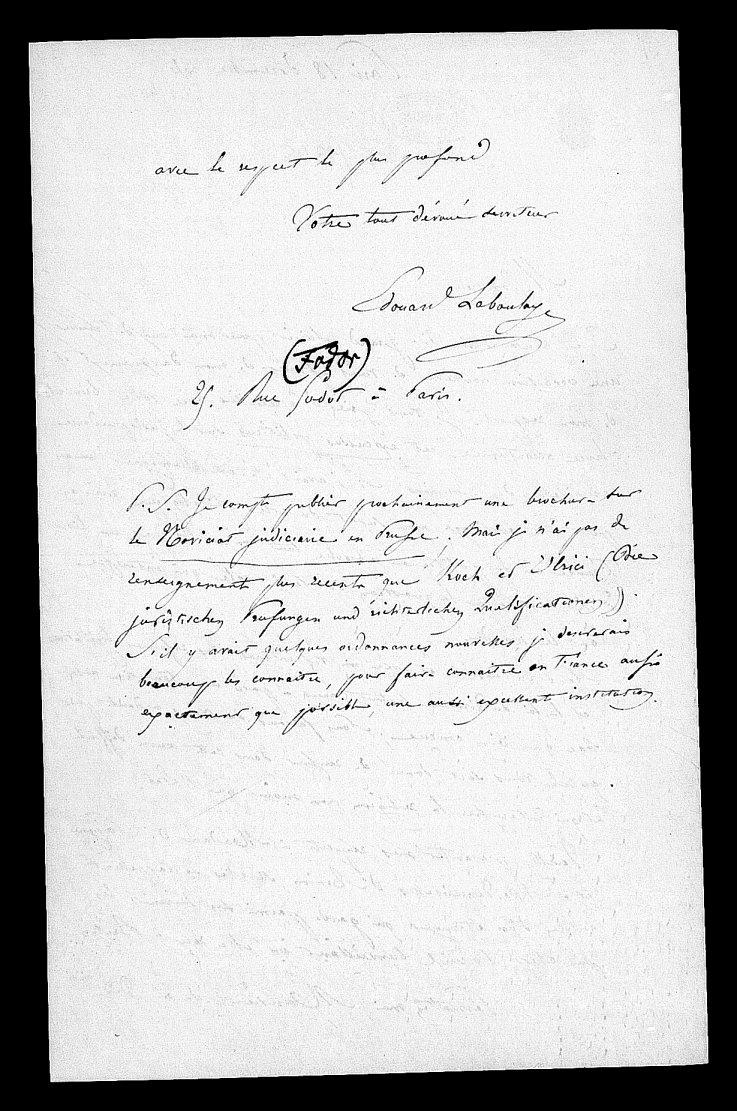 avec le respect le plus profond
Votre tout dévoué serviteur
Edouard Laboulaye
(Fodor)
25. Rue Godot à Paris.
P. S. Je compte publier prochainement une brochure sur
le Noviciat judiciaire en Prusse. Mais je n'ai pas de
renseignement plus recente que Koch et Ulrici (Die
juristischen Prufungen und richterlichen Qualificationen).
S'il y avait quelques ordonnances nouvelles je desirerais
beaucoup les connaitre, pour faire connaitre en France aussi
exactement que possible, une aussi excellente institution.